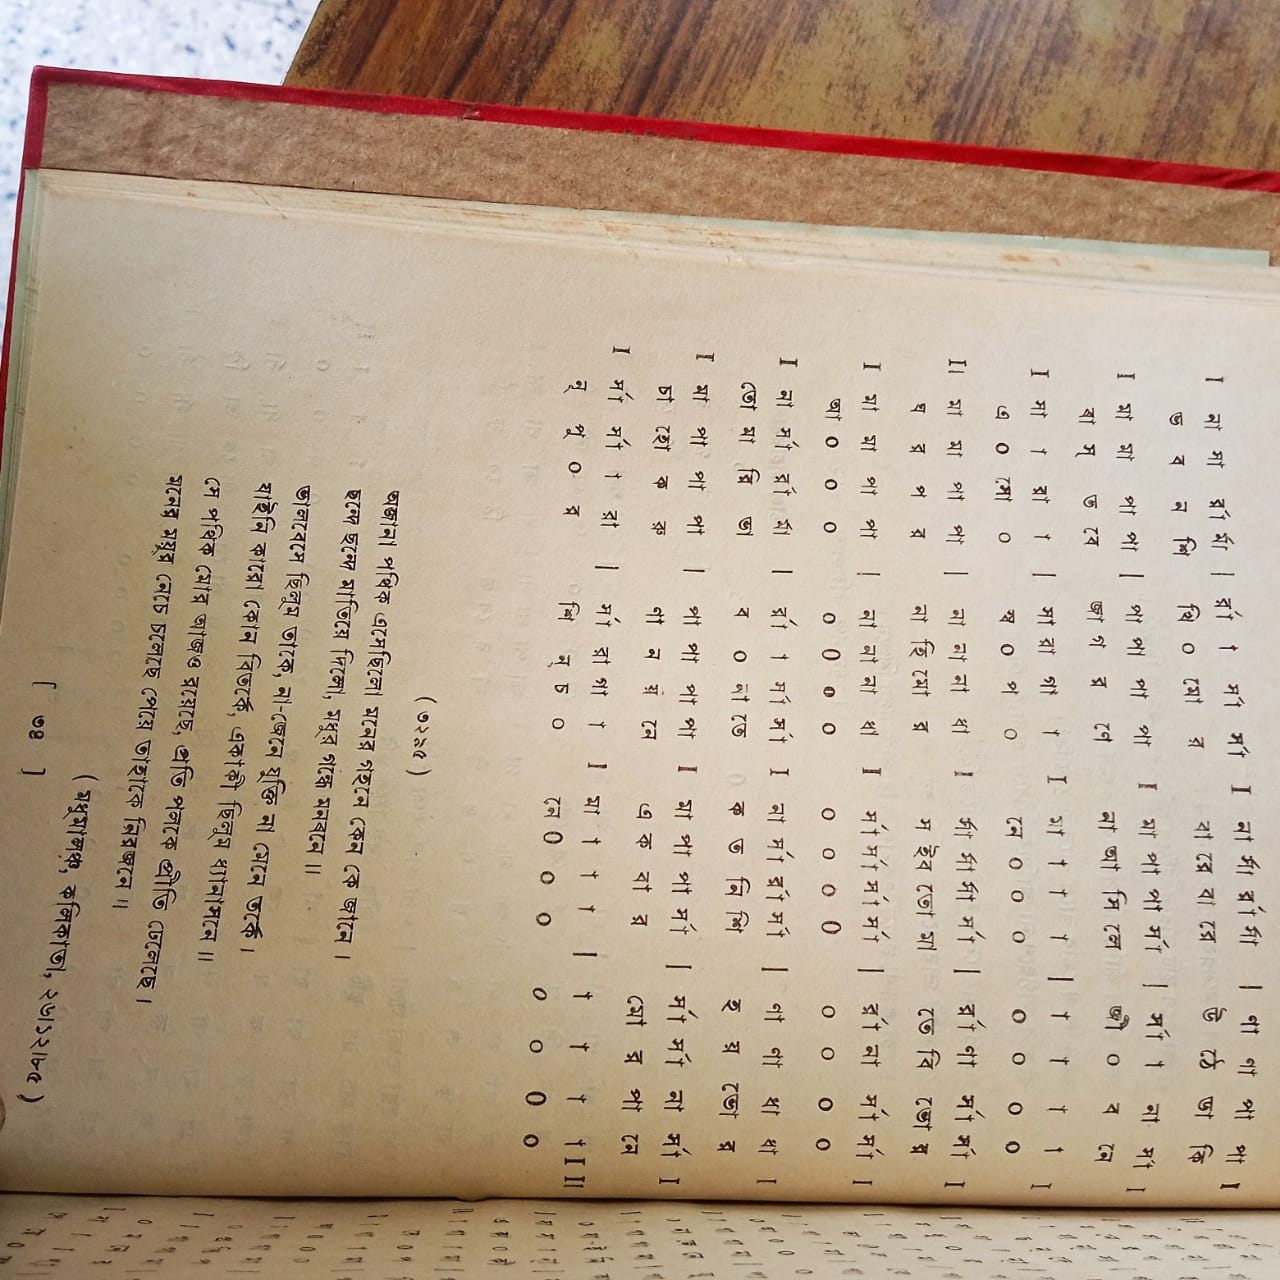 I না সা র্রা র্সা | র্রা † র্স র্সা I না র্সা র্রা র্সা | ণা ণা পা পা I
ভ ব ন শি খি ০ মো র বা রে বা রে উ ঠে ডা কি
I মা মা পা পা | পা পা পা পা I মা পা পা র্সা | র্সা † না র্সা I
বা স্ ত বে জা গ র ণে না আ সি লে জী ০ ব নে
I সা † রা † | সা রা পা † I মা † † † | † † † † I
এ ০ সো ০ স্ব ০ প ০ নে ০ ০ ০ ০ ০ ০ ০
II মা মা পা পা | না না না ধা I র্সা র্সা র্সা র্সা | র্রা ণা র্সা র্সা I
ঘ র প র না হি মো র স ইব তো মা তে বি ভো র
I মা মা পা পা | না না না ধা I র্সা র্সা র্সা র্সা | র্রা না র্সা র্সা I
আ ০ ০ ০ ০ ০ ০ ০ ০ ০ ০ ০ ০ ০ ০ ০
I না র্সা র্রা র্সা | র্রা † র্সা র্সা I না র্সা র্রা র্সা | ণা ণা ধা ধা I
তো মা রি ভা ব ০ না তে ক ত নি শি হ য় ভো র
I মা পা পা পা | পা পা পা পা I মা পা পা র্সা | র্সা র্সা না র্সা I
চা হো ক রু ণা ন য় নে এ ক বা র মো র পা নে
I র্সা র্সা † রা | র্সা রা পা † I মা † † † | † † † † I II
নূ পু ০ র শি ন্ চ ০ নে ০ ০ ০ ০ ০ ০ ০
( ৩২৯৫ )
অজানা পথিক এসেছিলো মনের গহনে কেন কে জানে ।
ছন্দে ছন্দে মাতিয়ে দিলো, মধুর গন্ধে মনবনে ॥
ভালবেসে ছিলুম তাকে, না-জেনে যুক্তি না মেনে তর্কে ।
যাইনি কারো কোন বিতর্কে, একাকী ছিলুম ধ্যানাসনে ॥
সে পথিক মোর আজও রয়েছে, প্রতি পলকে প্রীতি ঢেলেছে ।
মনের ময়ূর নেচে চলেছে পেয়ে তাহাকে নিরজনে ॥
( মধুমালঞ্চ, কলিকাতা, ২৬।১২।৮৫ )
[ ৩৪ ]